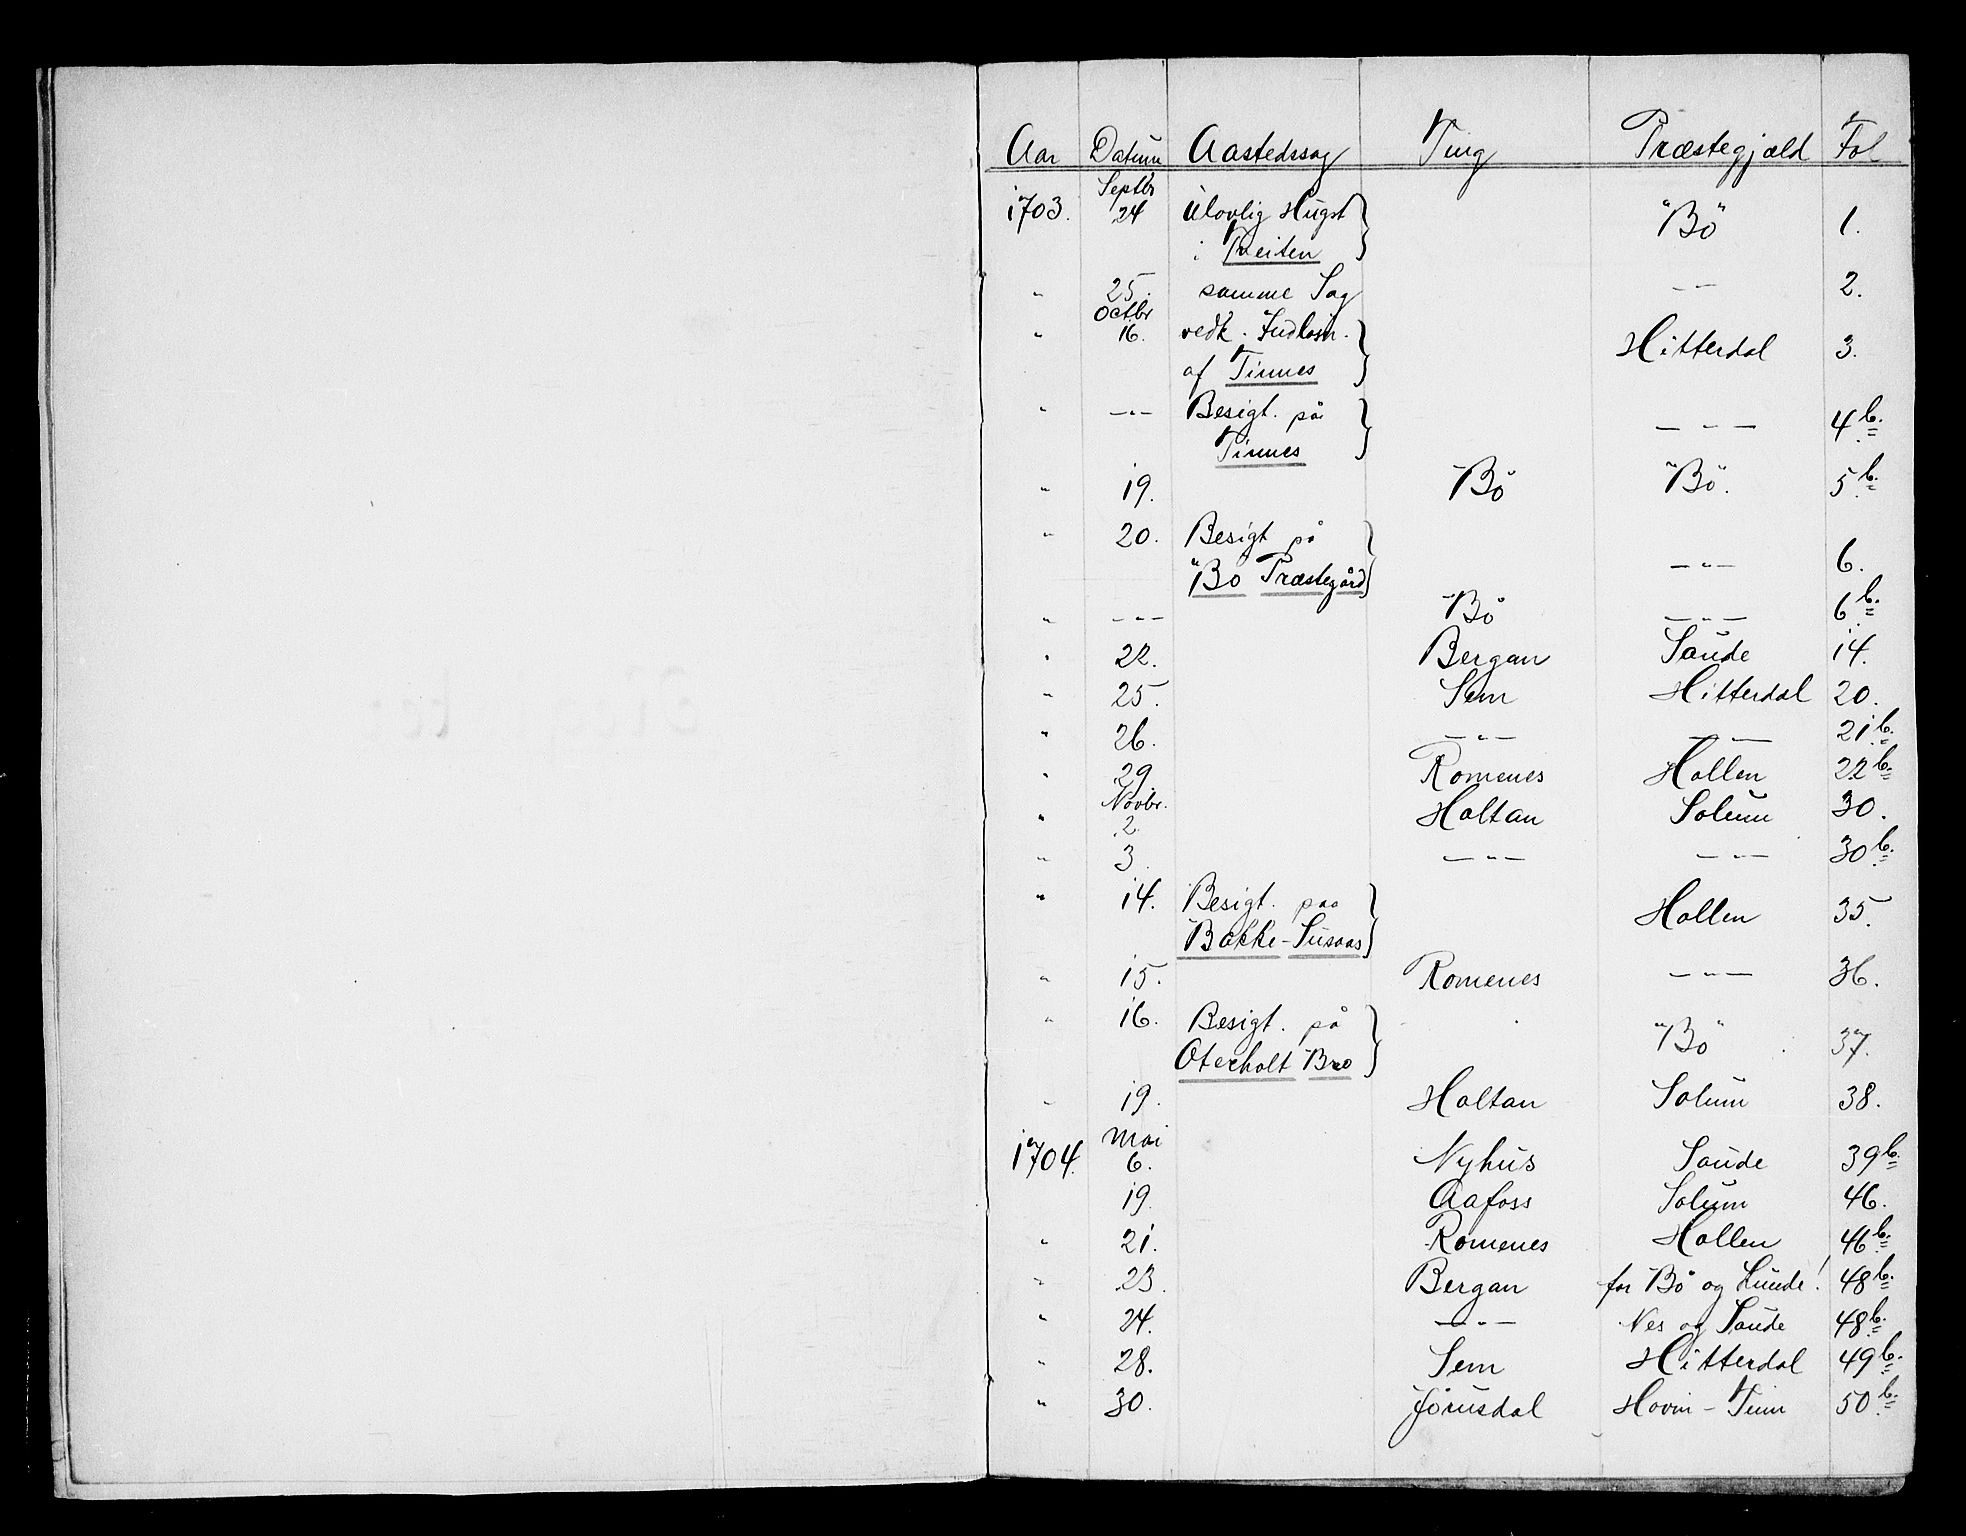 Aar Datum Aastedssag Ting Præstegjæld Fol
Septbr
1703. 24 Ulovlig Hugst "Bö" 1.
i Reiten
" 25. samme Sag - - 2.
Octbr
" 16. vedk. Hitterdal 3.
af Tinnes
" -"- Besigt. på -"- 4b.
Tinnes
" 19. Bö "Bö. 5b.
" 20. Besigt på -"- 6.
"Bö Præstegård
" -"- Bö -"- 6b.
" 22. Bergan Saude 14.
" 25. Sem Hitterdal 20.
" 26. -"- -"- 21b.
" 29 Romenes Hollen 22b
Novbr.
" 2. Holtan Solum 30.
" 3. -"- -"- 30b.
" 14. Besigt. paa Hollen 35.
Bakke-Susaas
" 15. Romenes -"- 36.
" 16. Besigt. på "Bö" 37.
Oterholt Bro
" 19. Holtan Solum 38.
Mai
1704. 6. Nyhus Saude 39b.
19. Aafoss Solum 46.
" 21. Romenes Hollen 46b.
" 23. Bergan for Bö og Lunde! 48b.
" 24. -"- Nes og Saude 48b.
" 28. Sem Hitterdal 49b.
" 30. Hovin - Tinn 50b.